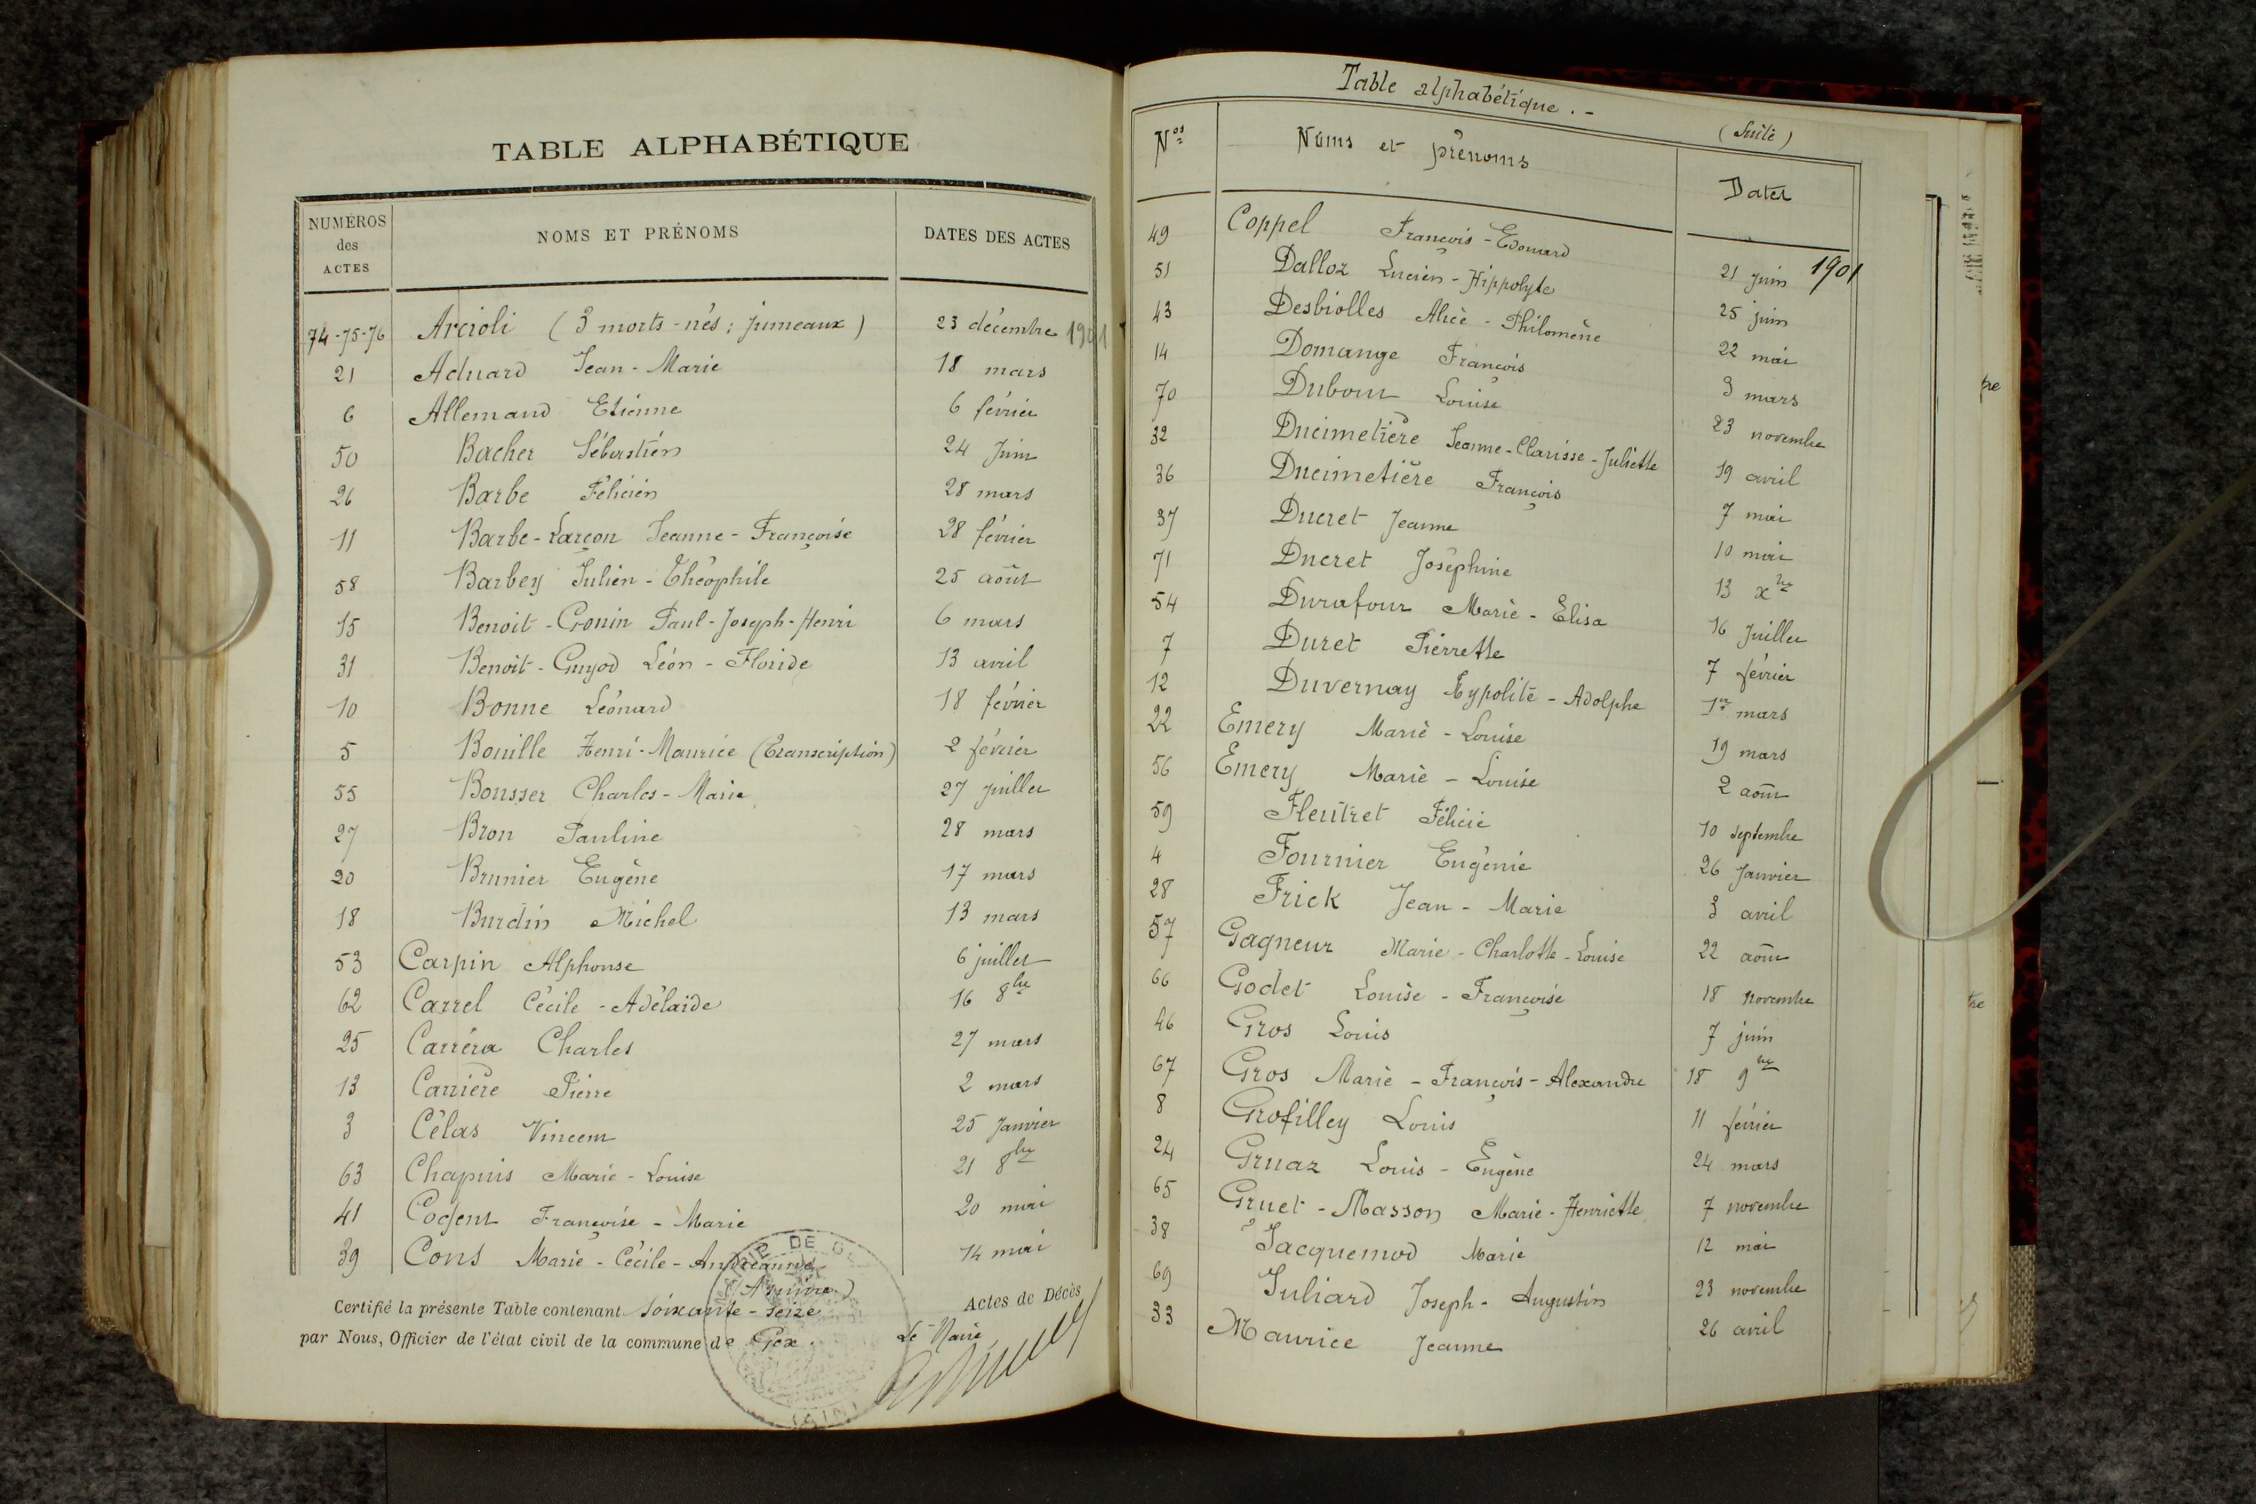 TABLE ALPHABÉTIQUE
NUMÉROS des ACTES NOMS ET PRÉNOMS DATES DES ACTES
74-75-76 Arcioli (3 morts-nés ; jumeaux) 23 décembre 1901
21 Aduard Jean-Marie 18 mars
6 Allemand Etienne 6 février
50 Bacher Sébastien 24 Juin
26 Barbe Félicien 28 mars
11 Barbe-Larçon Jeanne-Françoise 28 février
58 Barbey Julien-Théophile 25 août
15 Benoit-Gonin Paul-Joseph-Henri 6 mars
31 Benoit-Guyod Léon-Floride 13 avril
10 Bonne Léonard 18 février
5 Bouille Henri-Maurice (Transcription) 2 février
55 Bousser Charles-Marie 27 juillet
27 Bron Pauline 28 mars
20 Brunier Eugène 17 mars
18 Burdin Michel 13 mars
53 Carpin Alphonse 6 juillet
62 Carrel Cécile-Adélaïde 16 8bre
25 Carréra Charles 27 mars
13 Carrière Pierre 2 mars
3 Célas Vincent 25 Janvier
63 Chapuis Marie-Louise 21 8bre
41 Cogent Françoise-Marie 20 mai
39 Cons Marie-Cécile-Andréanne 14 mai
Certifié la présente Table contenant soixante-seize Actes de Décès
par Nous, Officier de l'état civil de la commune de Gex.
Le Maire
Table alphabétique.-
(Suite)
Nos Noms et prénoms Dates
49 Coppel François-Edouard 21 juin 1901
51 Dalloz Lucien-Hippolyte 25 juin
43 Desbiolles Alice-Philomène 22 mai
14 Domange François 3 mars
70 Dubout Louise 23 novembre
32 Ducimetière Jeanne-Clarisse-Juliette 19 avril
36 Ducimetière François 7 mai
37 Ducret Jeanne 10 mai
71 Ducret Joséphine 13 xbre
54 Durafour Marie-Elisa 16 Juillet
7 Duret Pierrette 7 février
12 Duvernay Hypolite-Adolphe 1er mars
22 Emery Marie-Louise 19 mars
56 Emery Marie-Louise 2 août
59 Fleutret Félicie 10 septembre
4 Fournier Eugénie 26 Janvier
28 Frick Jean-Marie 3 avril
57 Gagneur Marie-Charlotte-Louise 22 août
66 Godet Louise-Françoise 18 novembre
46 Gros Louis 7 juin
67 Gros Marie-François-Alexandre 18 9bre
8 Grosfilley Louis 11 février
24 Gruaz Louis-Eugène 24 mars
65 Gruet-Masson Marie-Henriette 7 novembre
38 Jacquemod Marie 12 mai
69 Juliard Joseph-Augustin 23 novembre
33 Maurice Jeanne 26 avril